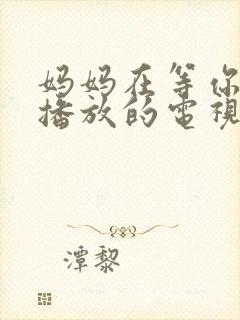 妈妈在等你
播放的電視
潭黎